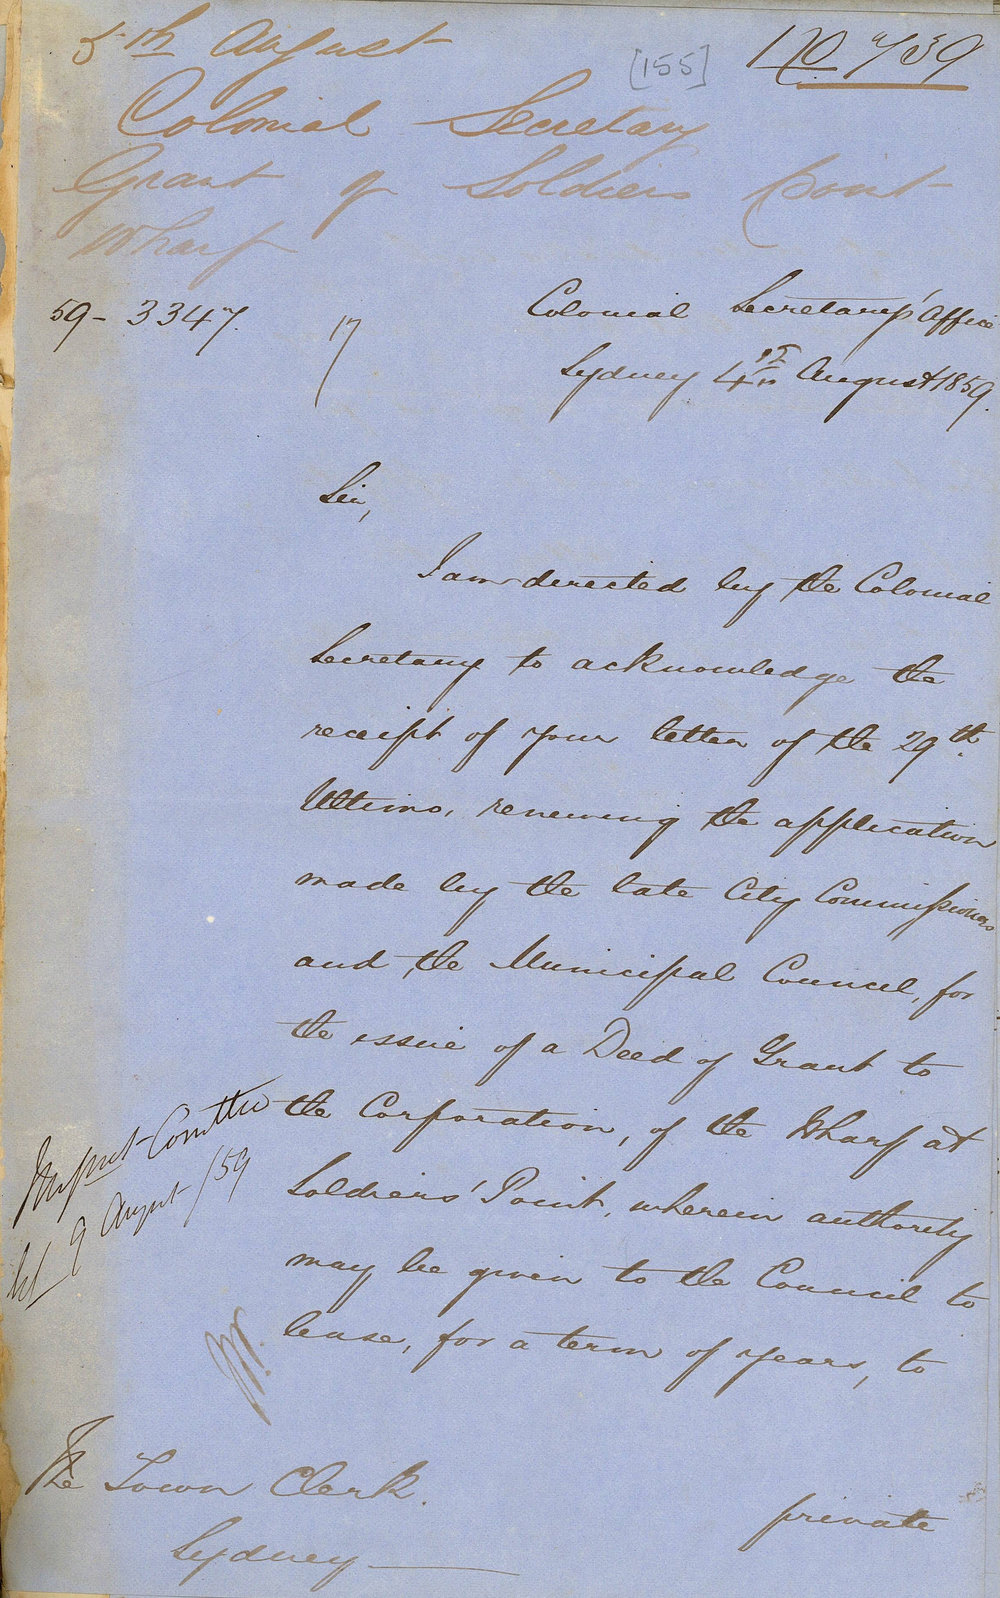 5th August
[155]
Colonial Secretary
Grant of Soldiers Point
Wharf
59-3347.
17
Colonial Secretary's Office
Sydney 4th August 1859.
Sir,
I am directed by the Colonial
Secretary to acknowledge the
receipt of your letter of the 29th.
Ultimo, renewing the application
made by the late City Commissioners
and the Municipal Council, for
the issue of a Deed of Grant to
the Corporation, of the Wharf at
Soldiers' Point, wherein authority
may be given to the Council to
lease, for a term of years, to
Committee
9 August /59
The Town Clerk.
Sydney
private